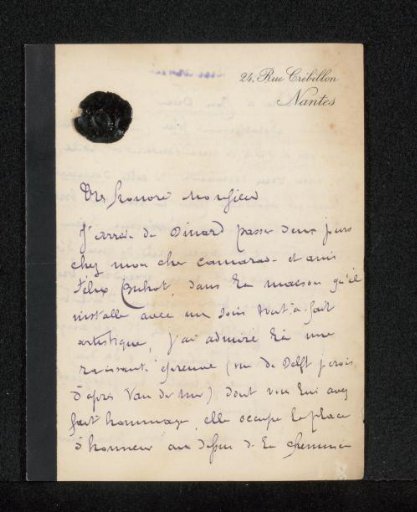 24, Rue Crébillon
Nantes
Très honoré Monsieur
J'arrive de Dinard passer deux jours
chez mon cher camarade et ami
Félix dans la maison qu'il
installe avec un soin tout à fait
artistique, j'ai admiré là une
ravissante épreuve (vue de Delft
d'après Van der Mer) dont vous lui avez
fait hommage, elle occupe la place
d'honneur au dessus de la cheminée